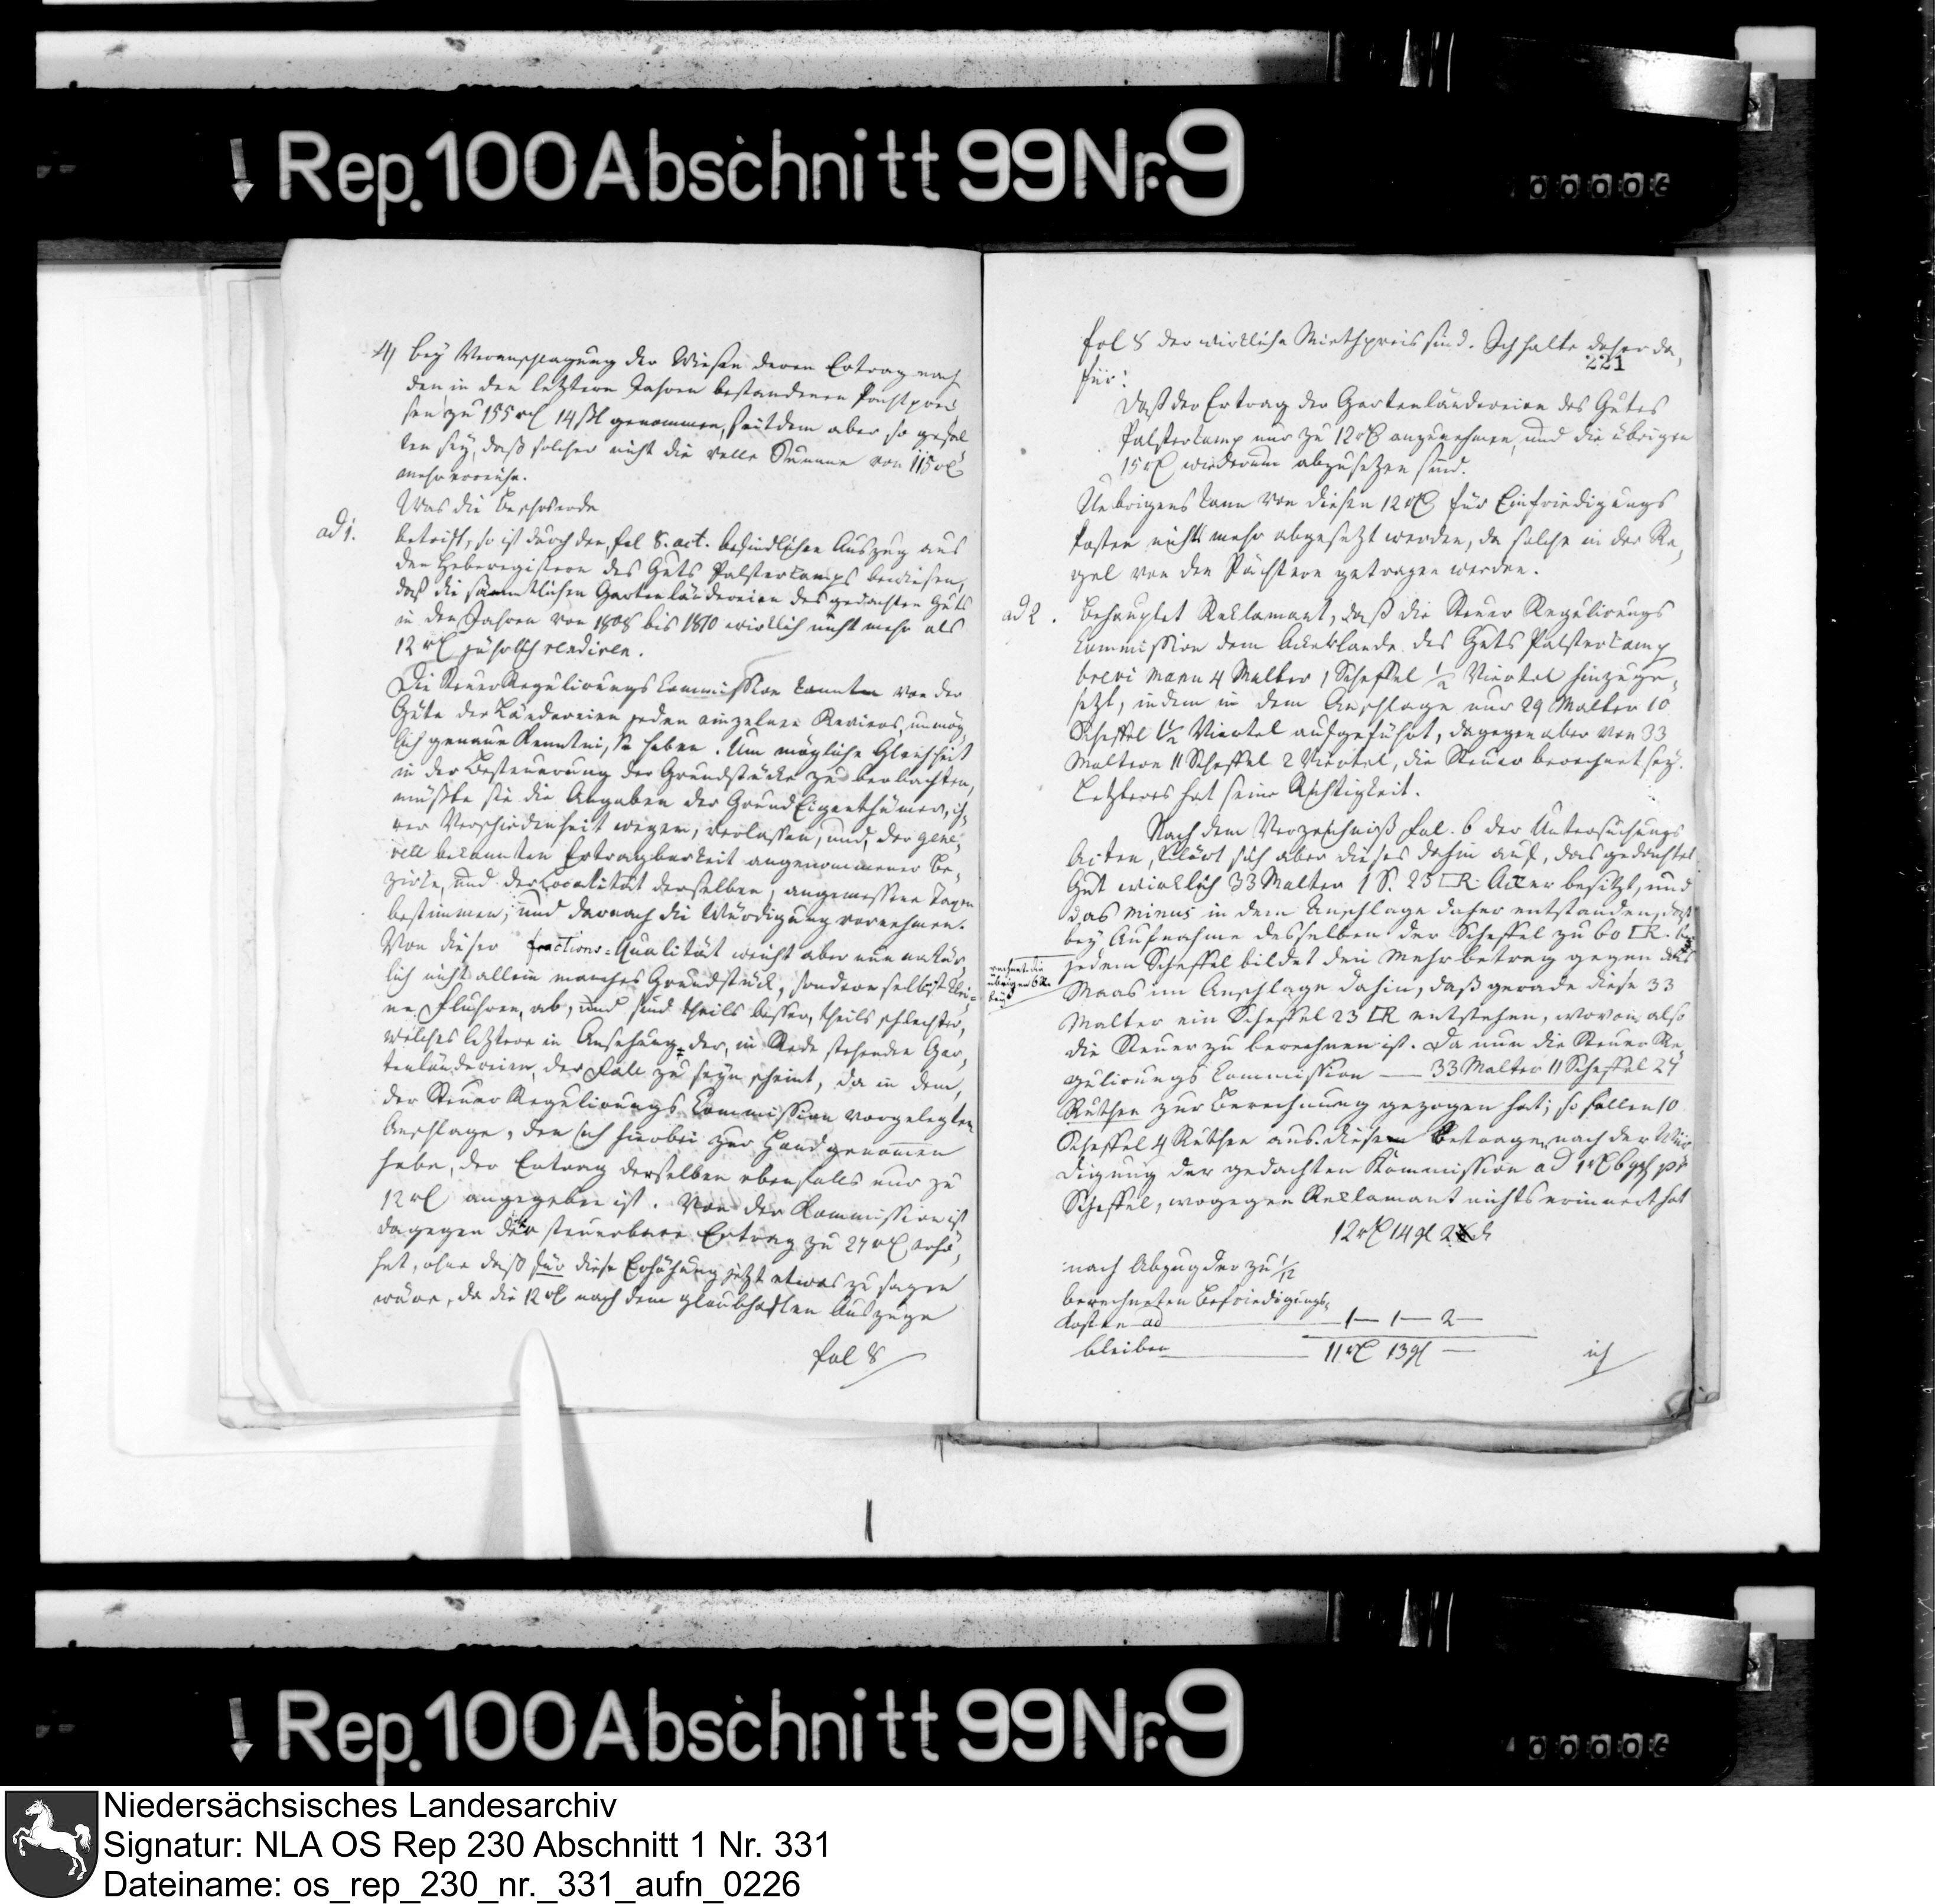 Rep. 100 Abschnitt 99 Nr. 9
00006
4) bey Veranschlagung der Wiesen deren Ertrag nach
den in den letztern Jahren bestandenen Pachtprei
sen zu 155 rℓ 14 ßl genommen, seitdem aber so gefal
len sey, daß solcher nicht die volle Summe von 115 rℓ
mehr erreiche.
Was die Beschwerde
ad 1. betrift, so ist durch den fol 8. act. befindlichen Auszug aus
den Heberegistern des Guts Palsterkamps bewiesen,
daß die sämmtlichen Gartenländereien des gedachten Guts
in den Jahren von 1808 bis 1810 wirklich nicht mehr als
12 rℓ jährlich rendiren.
Die Steuer Regulirungs Commission konnte von der
Güte der Ländereien jeden einzelnen Reviers, unmög
lich genaue Kenntniß haben. Um mögliche Gleichheit
in der Besteuerung der Grundstücke zu beobachten,
müßte sie die Angaben der Grund Eigenthümer, ih,
rer Verschiedenheit wegen, verlassen, und, der gene,
rell bekannten Ertragbarkeit angenommener Be,
zirke, und der Localität derselben, angemessene Taxen
bestimmen, und darnach die Würdigung vornehmen.
Von dieser fractions=Qualität weicht aber nun natür
lich nicht allein manches Grundstück, sondern selbst klei=
ne Fluhren, ab, und sind theils besser, theils schlechter,
welches letztere in Ansehung der, in Rede stehenden Gar,
tenländereien, der Fall zu seyn scheint, da in dem,
der Steuer Regulirungs Commission vorgelegten
Anschlage, den ich hierbei zur Hand genommen
habe, der Ertrag derselben ebenfalls nur zu
12 rℓ angegeben ist. Von der Kommission ist
dagegen der steuerbare Ertrag zu 27 rℓ erhö,
het, ohne daß für diese Erhöhung jetzt etwas zu sagen
wäre, da die 12 rℓ nach dem glaubhaften Auszuge
fol 8
221
fol 8 der wirkliche Miethpreis sind. Ich halte daher da,
für:
Daß der Ertrag der Gartenländereien des Gutes
Palsterkamp nur zu 12 rℓ anzunehmen, und die übrigen
15 rℓ wiederum abzusetzen sind.
Uebrigens kann von diesen 12 rℓ für Einfriedigungs
Kosten nichts mehr abgesetzt werden, da solche in der Re,
gel von den Pächtern getragen werden.
ad 2. Behauptet Reklamant, daß die Steuer Regulirungs
Commission dem Ackerlande des Guts Palsterkamp
brevi manu 4 Malter 1 Scheffel ½ Viertel hinzuge,
setzt, indem in dem Anschlage nur 29 Malter 10
Scheffel 1½ Viertel aufgeführt, dagegen aber von 33
Maltern 11 Scheffel 2 Viertel, die Steuer berechnet sey.
Letzteres hat seine Richtigkeit.
Nach dem Verzeichniß fol. 6 der Untersuchungs
Acten, klärt sich aber dieses dahin auf, das gedachtes
Gut wirklich 33 Malter 1 S. 23 □R. Acker besitzt, und
das minus in dem Anschlage daher entstanden, daß
bey Aufnahme desselben der Scheffel zu 60 □R. be
rechnet. die
übrigen 6 R.
bey
jedem Scheffel bildet den Mehrbetrag gegen das
Maas im Anschlage dahin, daß gerade diese 33
Malter ein Scheffel 23 □R entstehen, wovon also
die Steuer zu berechnen ist. Da nun die Steuer Re,
gulirungs Commission — 33 Malter 11 Scheffel 27
Ruthen zur Berechnung gezogen hat; so fallen 10
Scheffel 4 Ruthen aus. diesem Betrage, nach der Wür
digung der gedachten Kommission ad 1 rℓ 6 ggl pr
Scheffel, wogegen Reklamant nichts erinnert hat
12 rℓ 14 gl 2 d
nach Abzug der zu 1/12
berechneten Befriedigungs,
Kosten ad — 1 — 1 — 2 —
bleiben — 11 rℓ 13 gl —
ich
Rep. 100 Abschnitt 99 Nr. 9
00006
Niedersächsisches Landesarchiv
Signatur: NLA OS Rep 230 Abschnitt 1 Nr. 331
Dateiname: os_rep_230_nr._331_aufn_0226